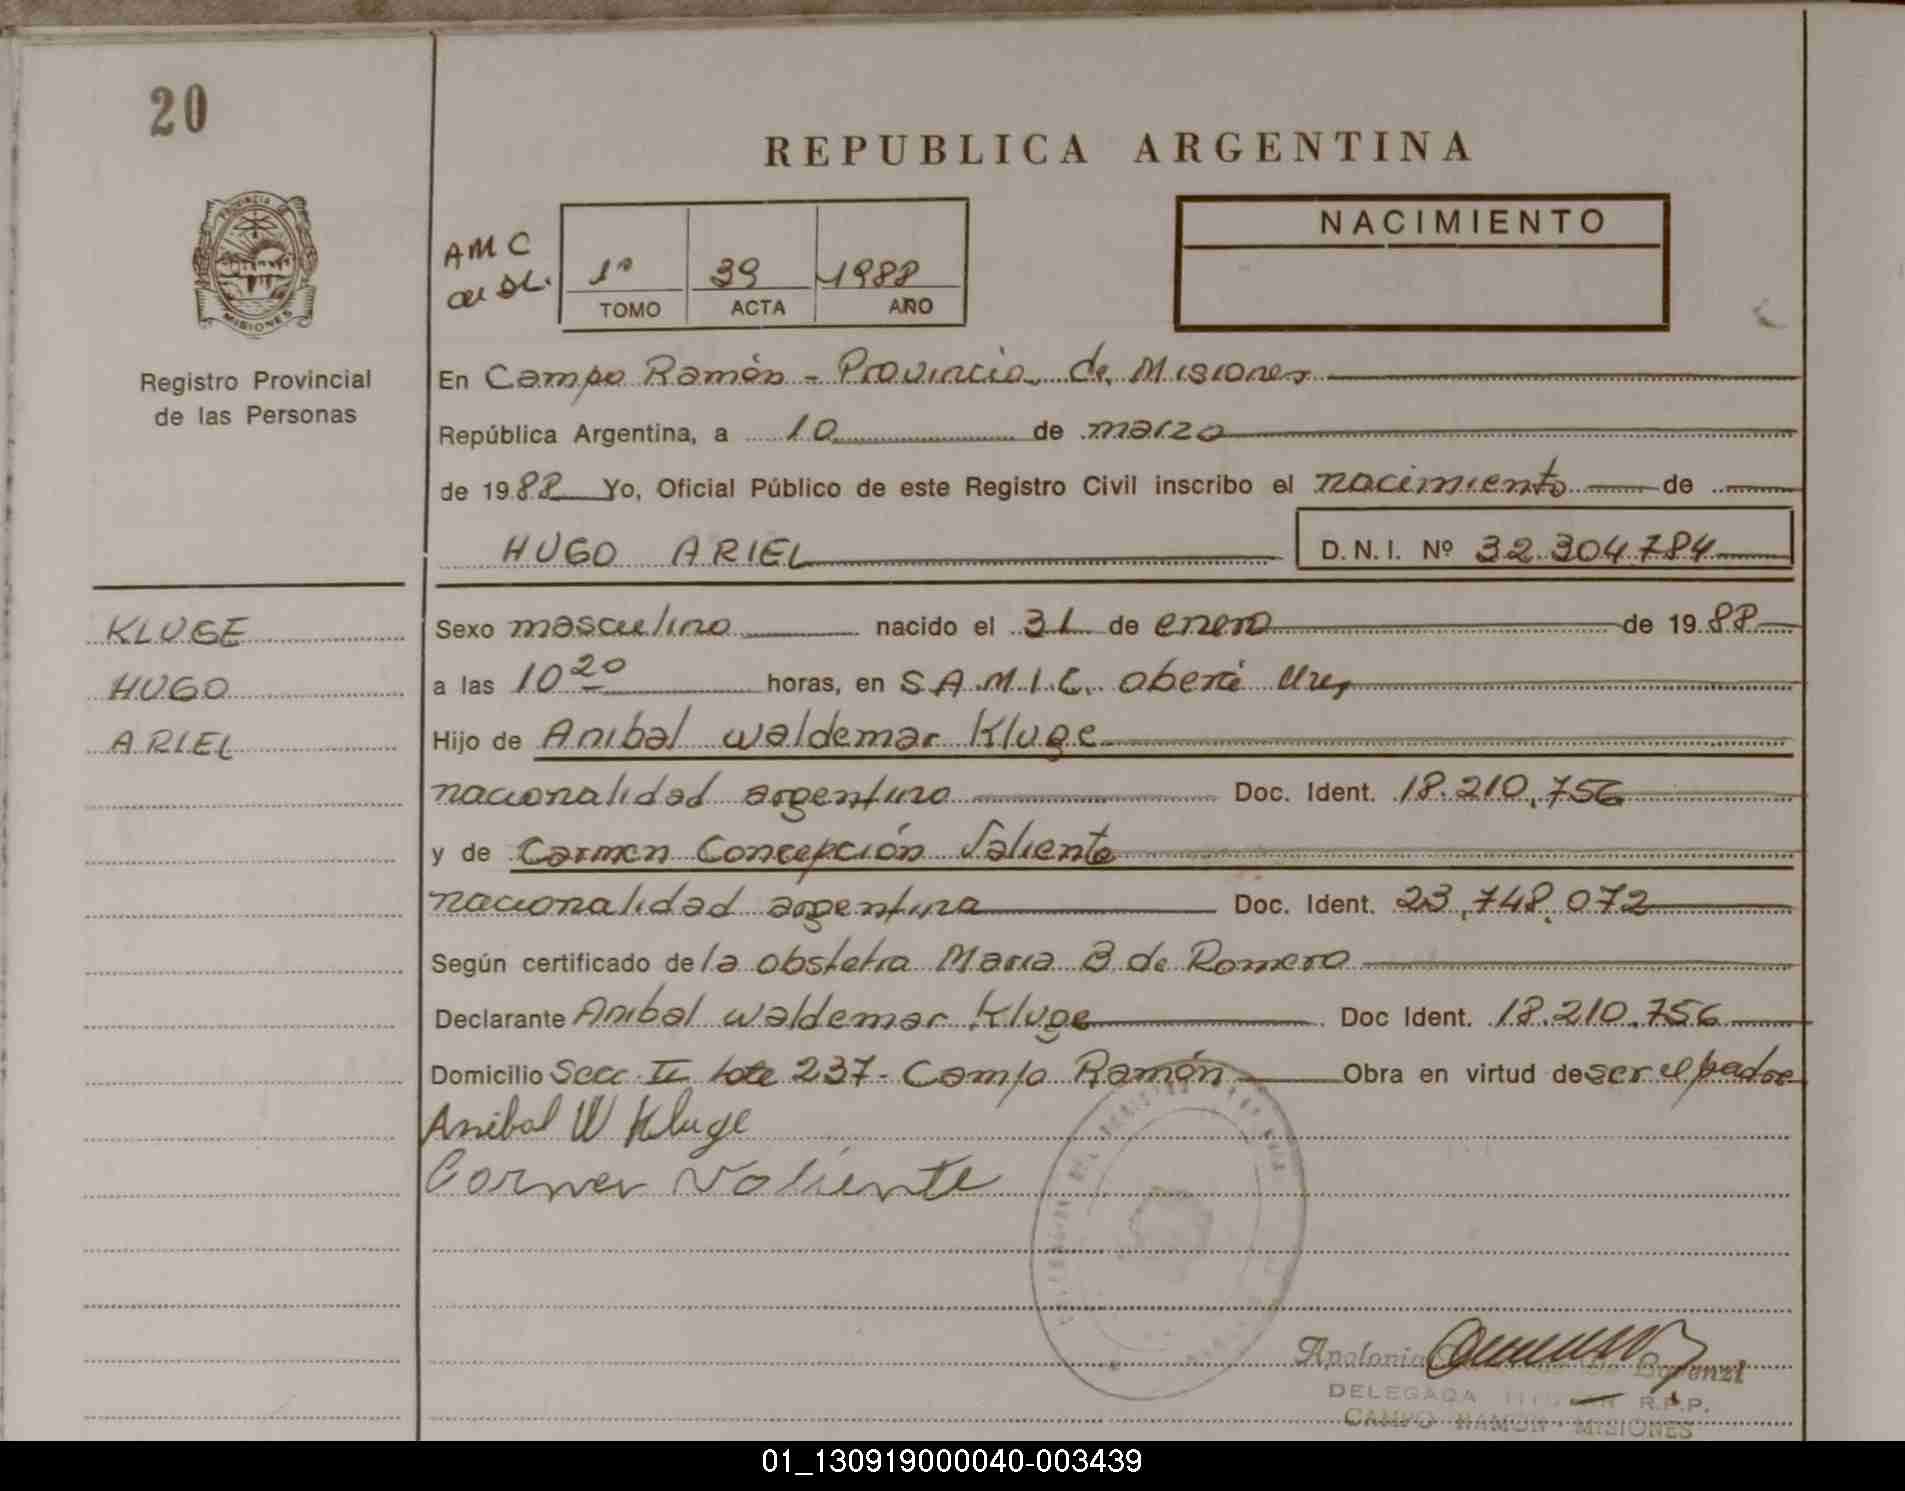 20
REPUBLICA ARGENTINA
PROVINCIA DE
MISIONES
Registro Provincial
de las Personas
AMC
1º 39 1988
TOMO ACTA AÑO
NACIMIENTO
En Campo Ramón - Provincia de Misiones
República Argentina, a 10 de marzo
de 1988 Yo, Oficial Público de este Registro Civil inscribo el nacimiento de
HUGO ARIEL D.N.I. Nº 32.304.784
KLUGE
HUGO
ARIEL
Sexo masculino nacido el 31 de enero de 1988
a las 10 20 horas, en S.A.M.I.C. oberá
Hijo de Anibal waldemar Kluge
nacionalidad argentino Doc. Ident. 18.210.756
y de Carmen Concepción Valiente
nacionalidad argentina Doc. Ident. 23.748.072
Según certificado de la obstetra Maria B de Romero
Declarante Anibal waldemar Kluge Doc Ident. 18.210.756
Domicilio Secc II lote 237 - Campo Ramón Obra en virtud de ser el padre
Anibal W Kluge
Carmen Valiente
Apolonia
DELEGADA R.P.P.
CAMPO RAMON - MISIONES
01_130919000040-003439